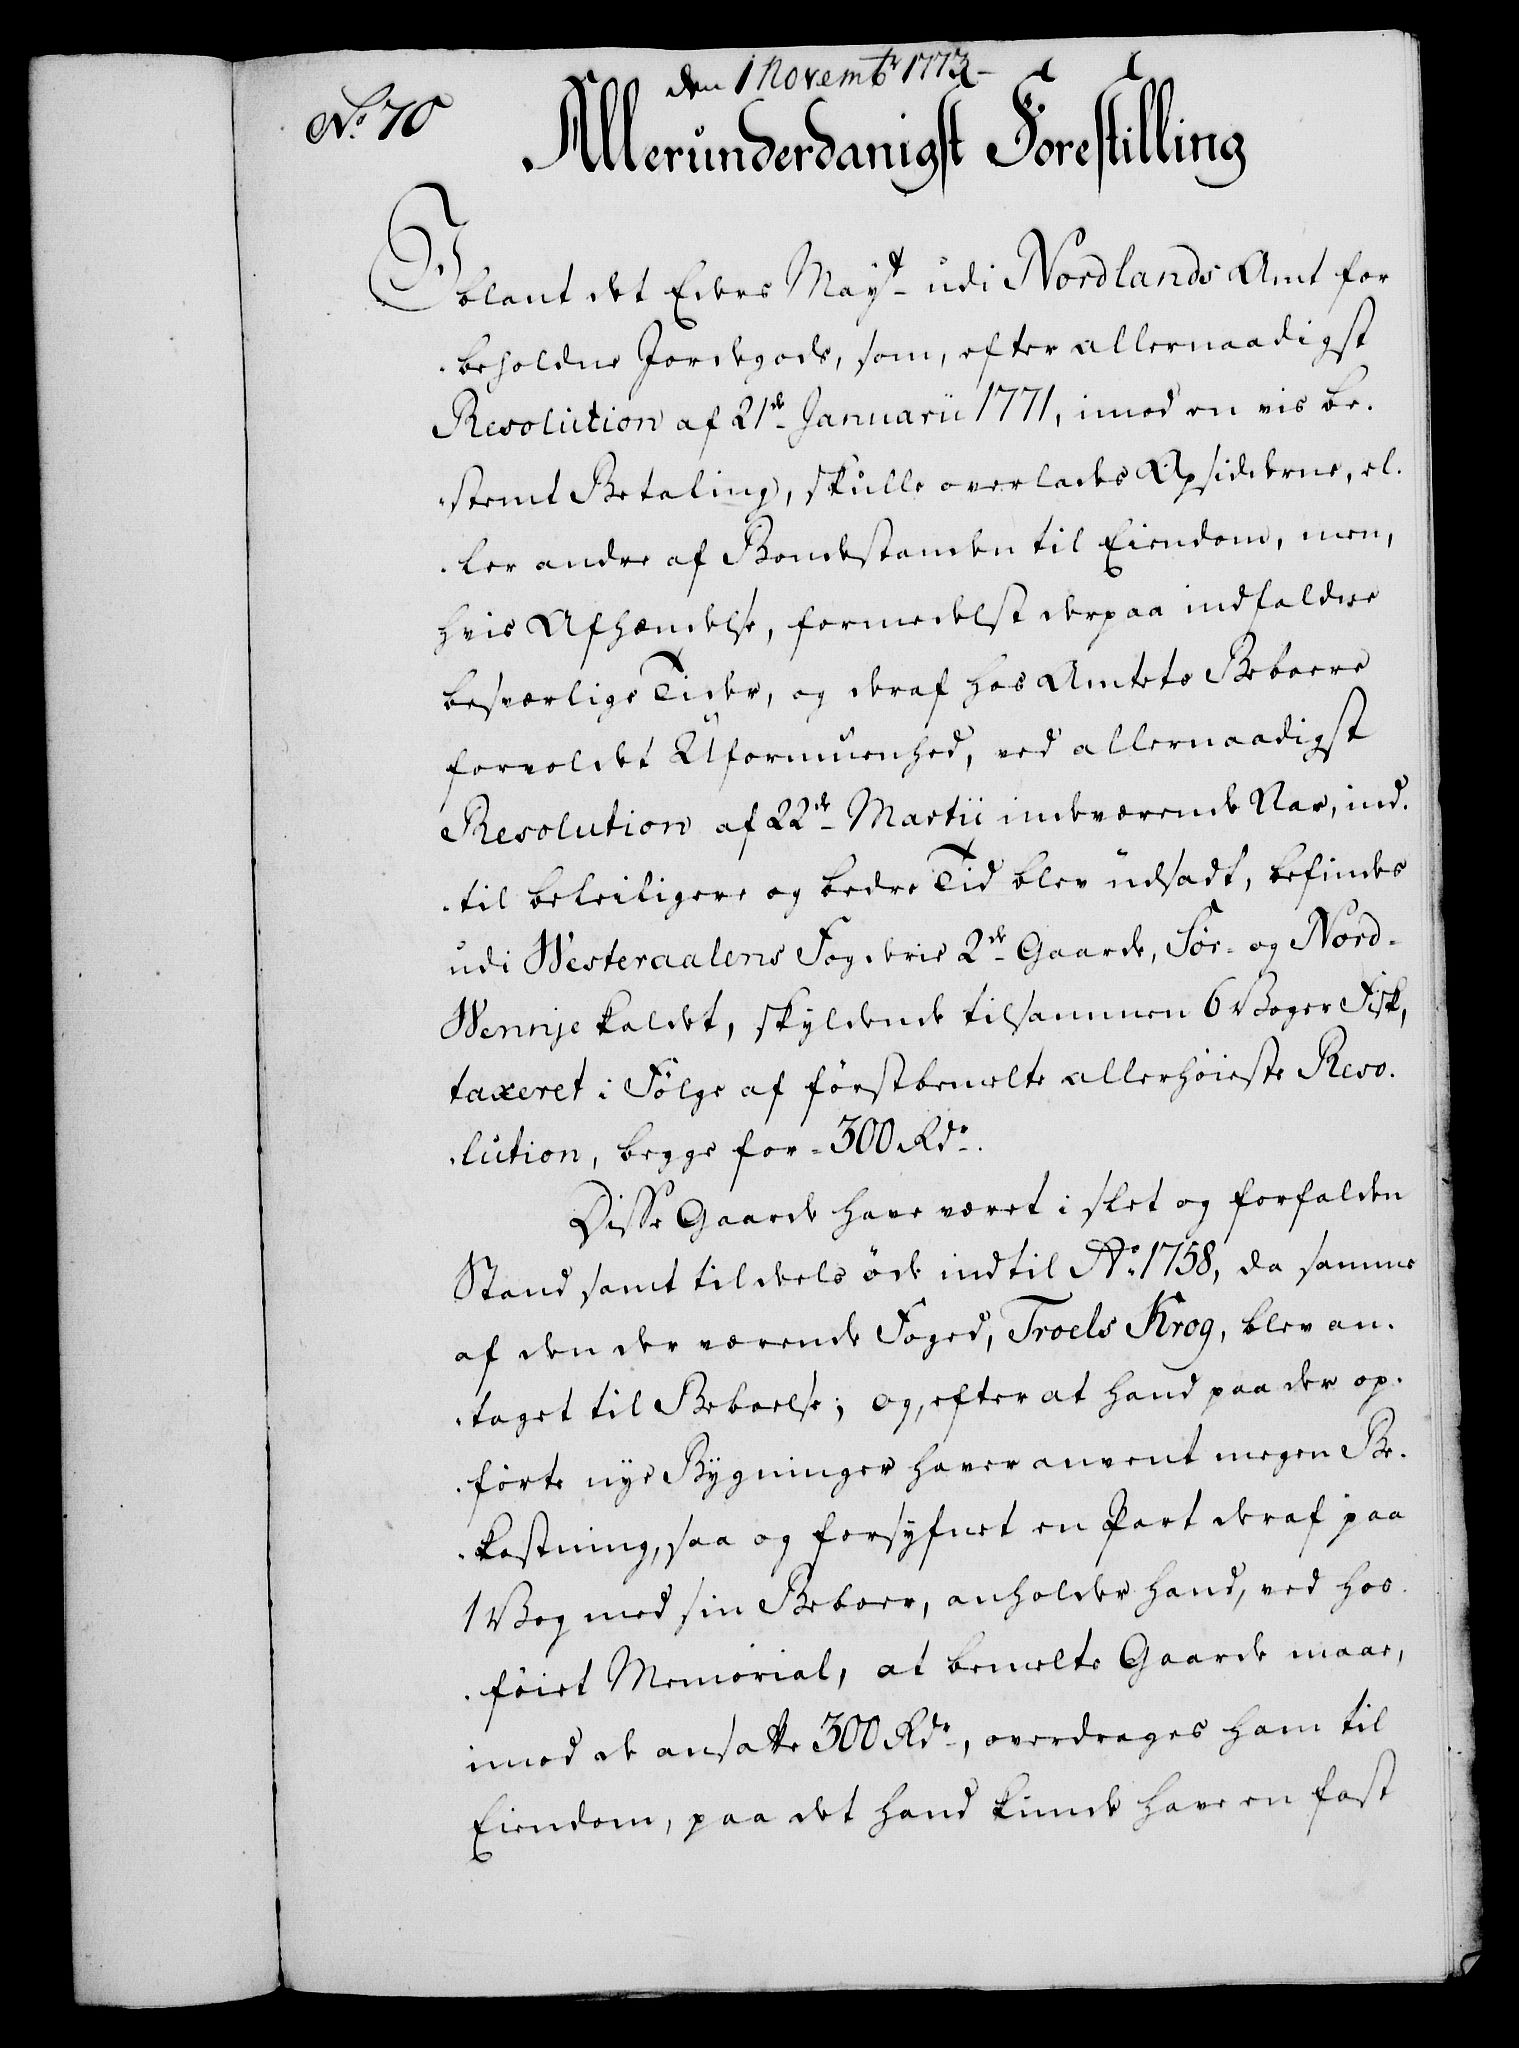 den 1 Novembr 1773
No 70
Allerunderdanigst Forestilling
Iblant det Eders Mayt udi Nordlands Amt for
beholdne Jordegods, som, efter allernaadigst
Resolution af 21de Januarii 1771, imod en vis be-
stemt Betaling, skulle overlades Opsidderne, el-
ler andre af Bondestanden til Eiendom, men,
hvis Afhændelse, formedelst derpaa indfaldne
besværlige Tider, og deraf hos Amtets Beboere
forvoldet Uformuenhed, ved allernaadigst
Resolution af 22de Martii indeværende Aar, ind-
til beleiligere og bedre Tid blev udsadt, befindes
udi Westeraalens Fogderie 2de Gaarde, Sör- og Nord-
Wennje kaldet, skyldende tilsammen 6 Voger Fisk,
taxeret i Fölge af förstbemelte allerhöieste Reso-
lution, begge for 300 Rdr.
Disse Gaarde have været i slet og forfalden
Stand samt til deels öde indtil Ao 1758, da samme
af den der værende Foged, Troels Krog, blev an-
taget til Beboelse; og, efter at hand paa der op-
förte nye Bygninger haver anvent megen Be-
kostning, saa og forsyfnet en Part deraf paa
1 Vog med sin Beboer, anholder hand, ved hos-
föiet Memorial, at bemelte Gaarde maae,
imod de ansatte 300 Rdr, overdrages ham til
Eiendom, paa det hand kunde have en fast